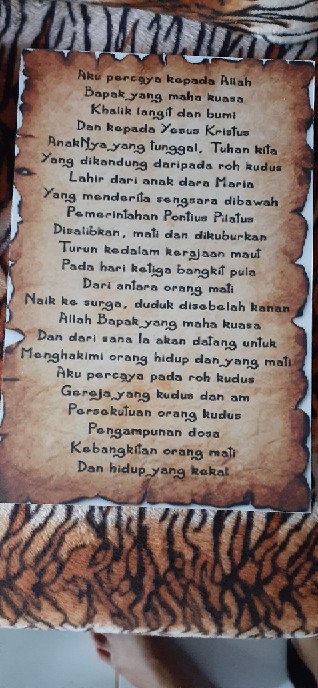 Aku percaya kepada Allah
Bapak yang maha kuasa
Khalik langit dan bumi
Dan kepada Yesus Kristus
AnakNya yang tunggal, Tuhan kita
Yang dikandung daripada roh kudus
Lahir dari anak dara Maria
Yang menderita sengsara dibawah
Pemerintahan Pontius Pilatus
Disalibkan, mati dan dikuburkan
Turun kedalam kerajaan maut
Pada hari ketiga bangkit pula
Dari antara orang mati
Naik ke surga, duduk disebelah kanan
Allah Bapak yang maha kuasa
Dan dari sana Ia akan datang untuk
Menghakimi orang hidup dan yang mati
Aku percaya pada roh kudus
Gereja yang kudus dan am
Persekutuan orang kudus
Pengampunan dosa
Kebangkitan orang mati
Dan hidup yang kekal